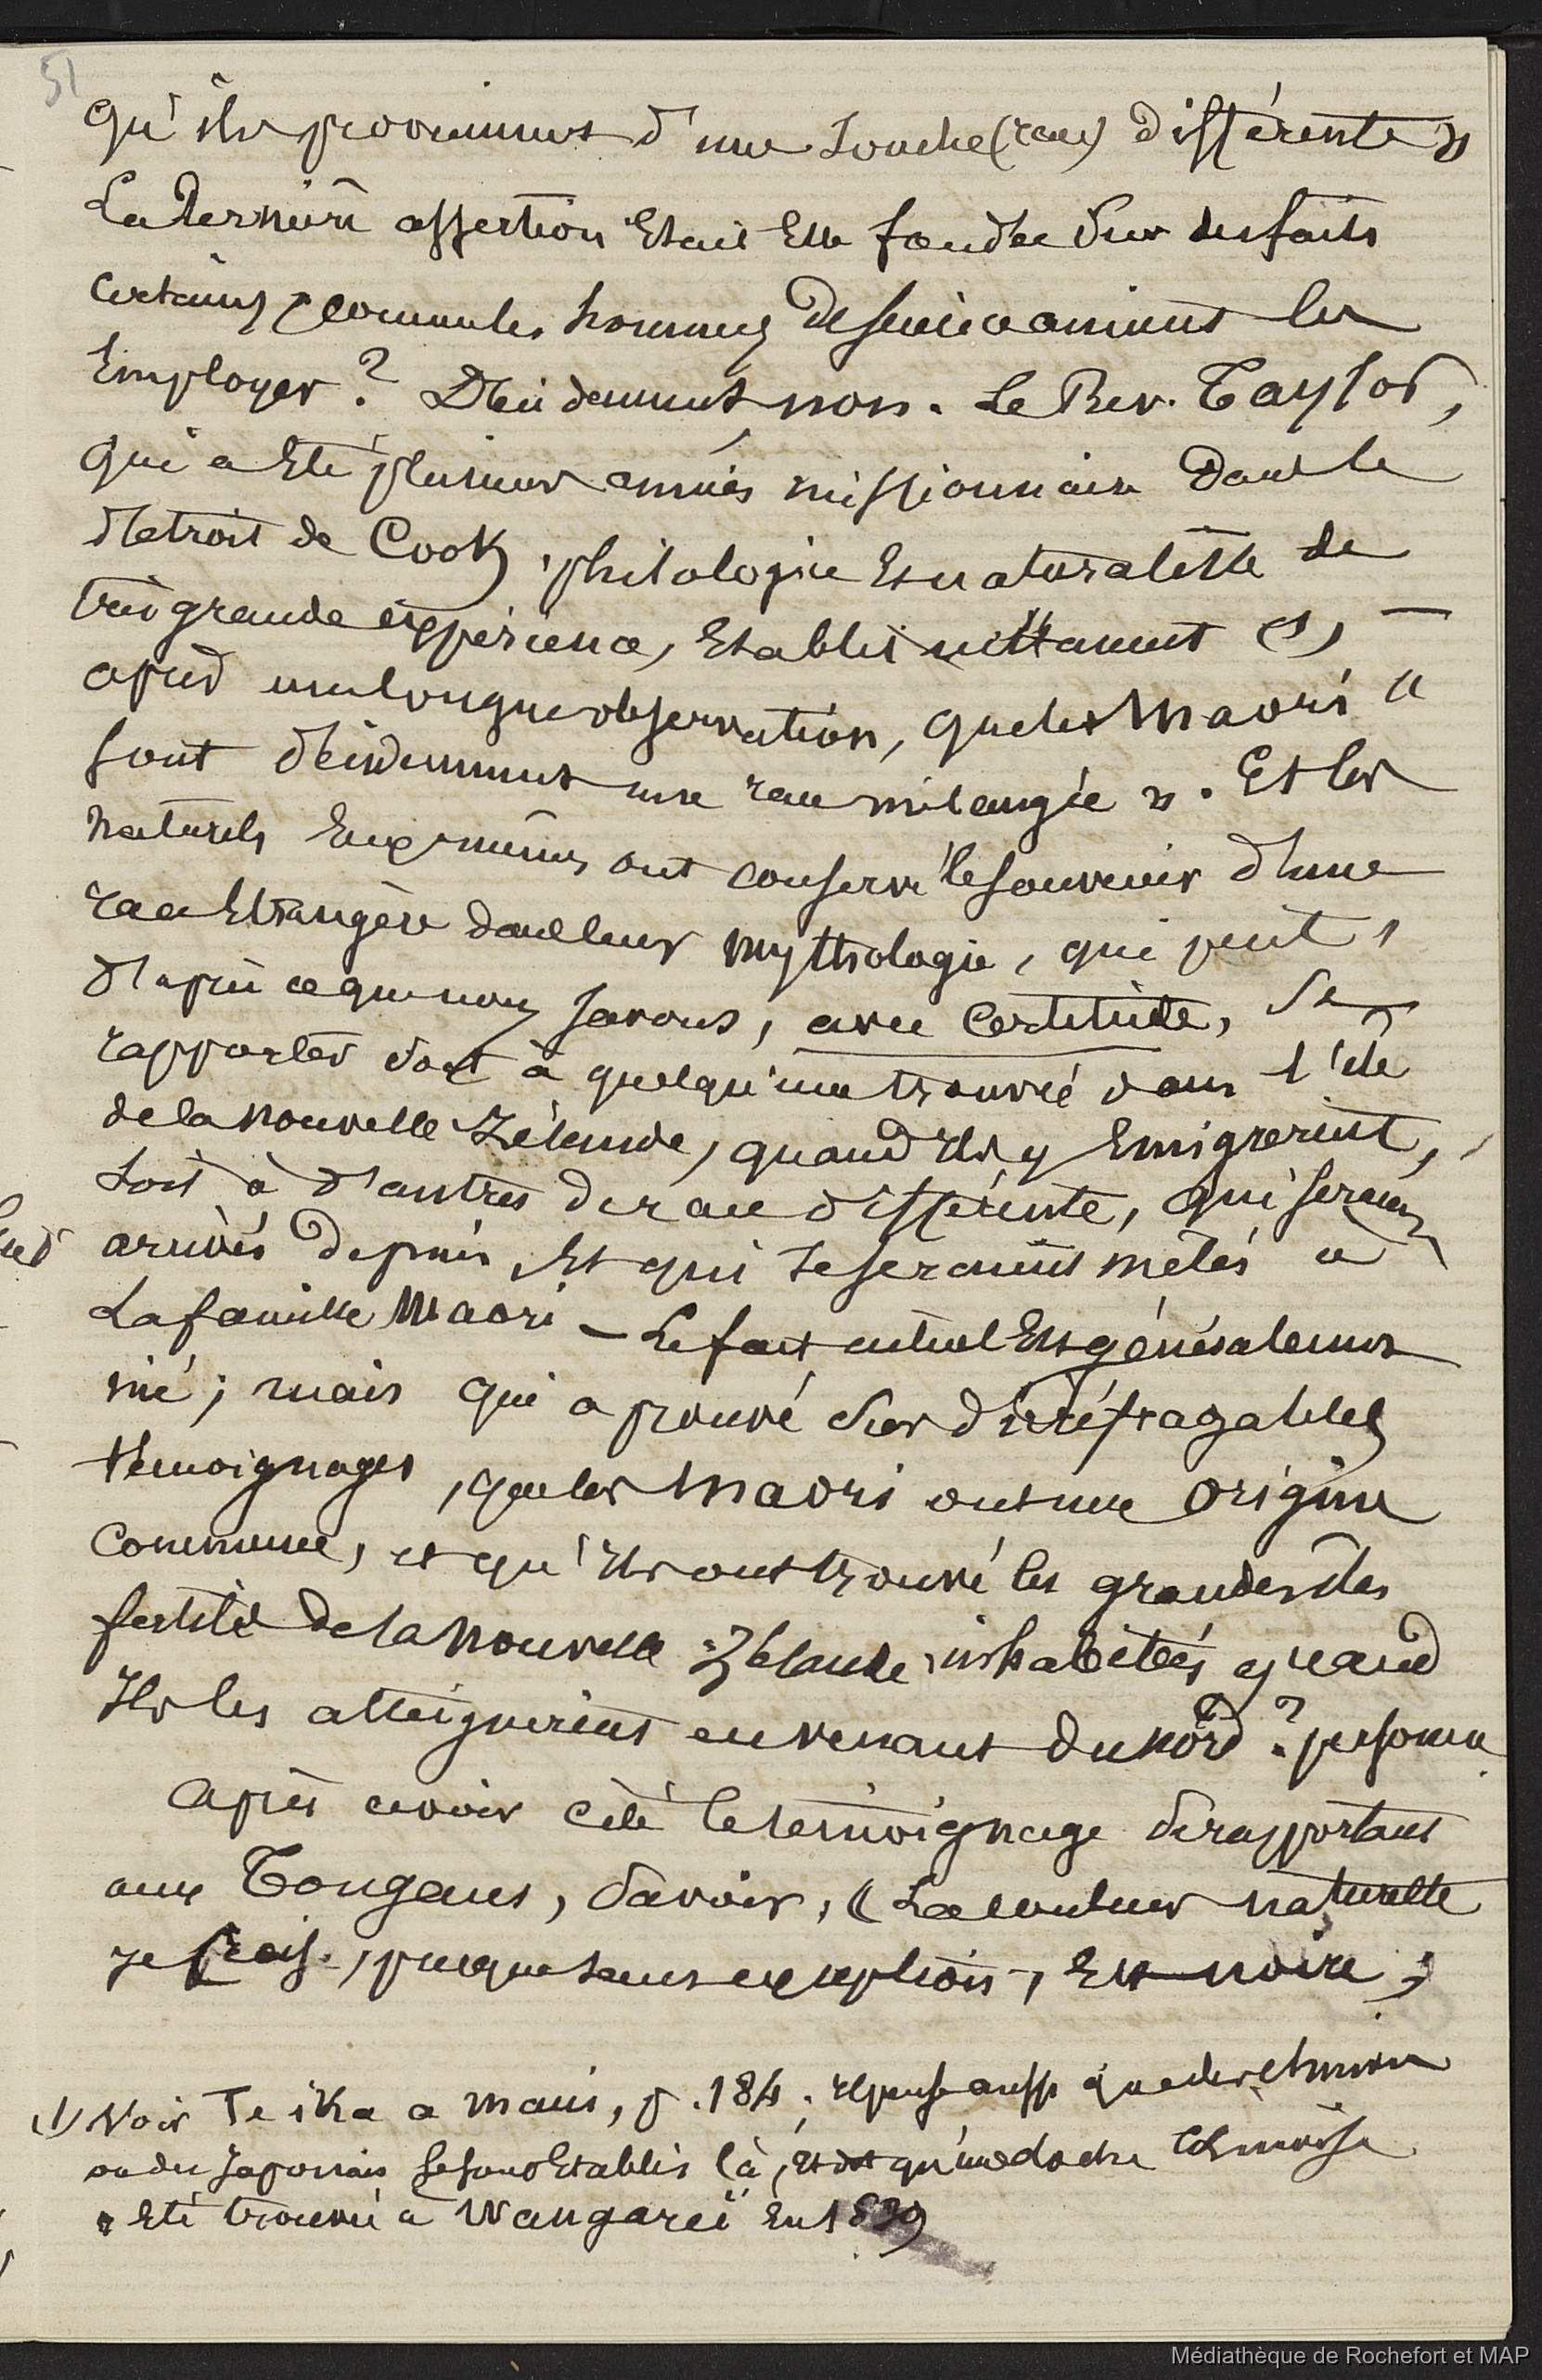 51
qu'ils proviennent d'une souche (race) différente »
La dernière assertion était elle fondée sur des faits
certains, comme les hommes de science aiment les
employer ? Évidemment non. Le Rev. Taylor,
qui a été plusieurs années missionnaire dans le
détroit de Cook, philologue et naturaliste de
très grande expérience, établit nettement (1), —
après une longue observation, que les Maori «
sont évidemment une race mélangée ». Et les
naturels eux-mêmes ont conservé le souvenir d'une
race étrangère dans leur mythologie, qui peut,
d'après ce que nous savons, avec certitude, se
rapporter soit à quelqu'une trouvée dans l'île
de la Nouvelle Zélande, quand ils y émigrèrent,
soit à d'autres de race différente, qui seraient
arrivés depuis, et qui se seraient mêlés à
la famille Maori — Le fait actuel est généralement
nié ; mais qui a prouvé sur d'irréfragables
témoignages, que les Maori ont une origine
commune, et qu'ils ont trouvé les grandes îles
fertiles de la Nouvelle Zélande, inhabitées quand
ils les atteignirent en venant du nord ? personne
Après avoir cité le témoignage se rapportant
aux Tongans, savoir, « La couleur naturelle
je crois, presque sans exception, est noire ;
(1) Voir Te ika a Maui, p. 184. il pense aussi que des chinois
ou des japonais se sont établis là, et dit qu'une cloche chinoise
a été trouvée à Wangareï en 1839
Médiathèque de Rochefort et MAP